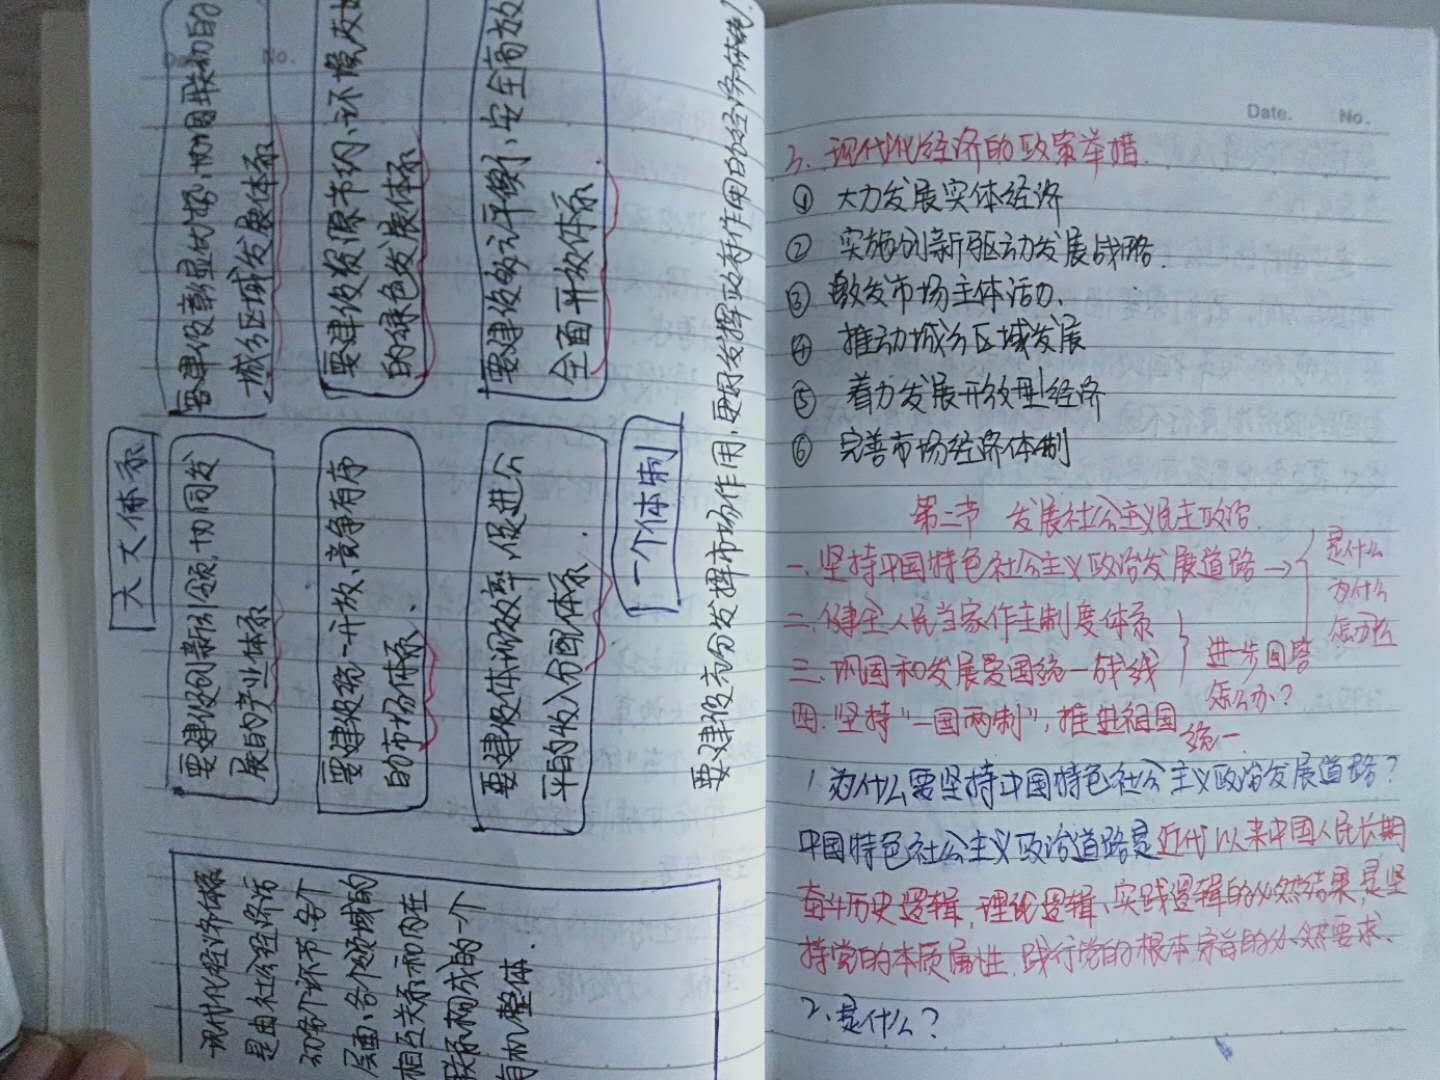 现代化经济体系
是由社会经济活
动各个环节、各个
层面、各个领域的
相互关系和内在
联系构成的一个
有机整体.
六大体系
要建设创新引领,协同发
展的产业体系
要建设彰显优势,协调联动的
城乡区域发展体系
要建设统一开放、竞争有序
的市场体系、
要建设资源节约、环境友
的绿色发展体系
要建设体现效率、促进公
平的收入分配体系.
要建设多元平衡、安全高效
全面开放体系
一个体制
要建设充分发挥市场作用,更好发挥政府作用的经济体制
Date. No.
3、现代化经济的政策举措.
① 大力发展实体经济
② 实施创新驱动发展战略.
③ 激发市场主体活力、
④ 推动城乡区域发展
⑤ 着力发展开放型经济
⑥ 完善市场经济体制
第二节 发展社会主义民主政治
一.坚持中国特色社会主义政治发展道路→
是什么
为什么
怎么办
二.健全人民当家作主制度体系
三.巩固和发展爱国统一战线
四.坚持“一国两制”,推进祖国
统一.
进一步回答
怎么办?
1.为什么要坚持中国特色社会主义政治发展道路?
中国特色社会主义政治道路是近代以来中国人民长期
奋斗历史逻辑,理论逻辑、实践逻辑的必然结果,是坚
持党的本质属性、践行党的根本宗旨的必然要求、
2、是什么?